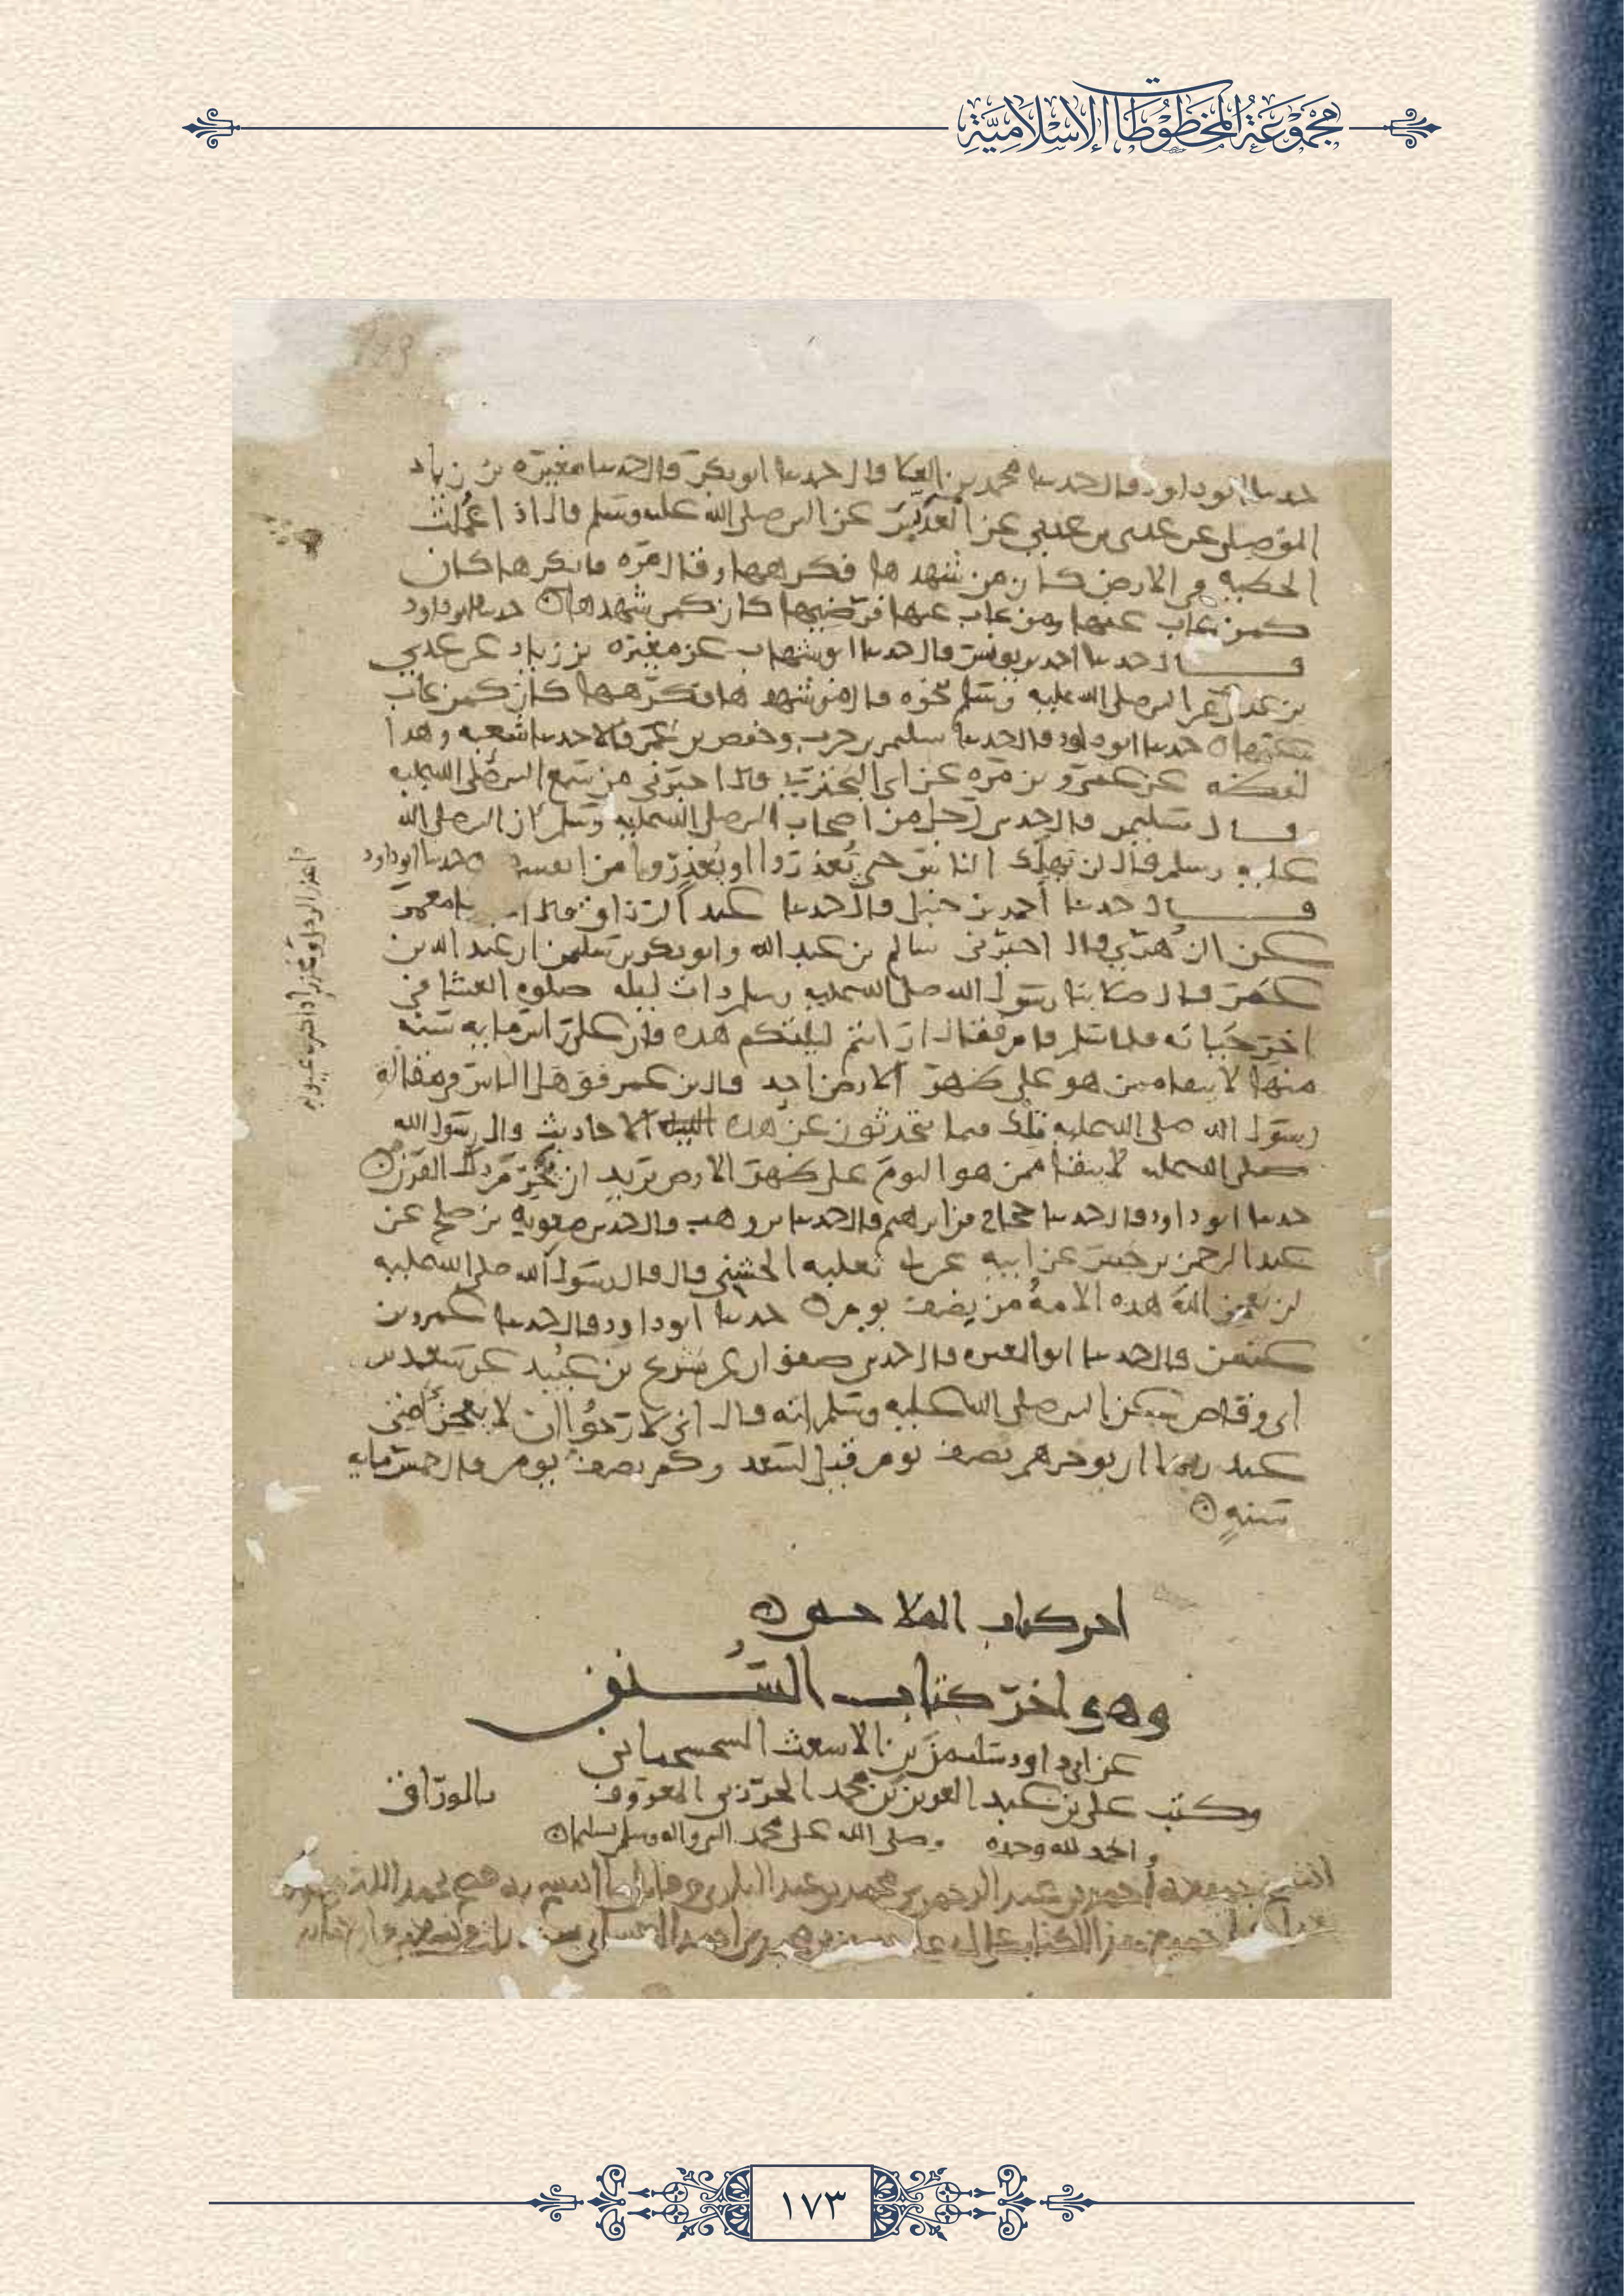 مجموعة المخطوطات الإسلامية
حدثنا ابو داود قال حدثنا محمد بن العلا قال حدثنا ابو بكر قال حدثنا مغيرة بن زياد
الموصلي عن عدي بن عدي عن العرس عن النبي صلى الله عليه وسلم قال اذا عملت
الخطيه في الارض كان من شهدها فكرهها وقال مره فانكرها كان
كمن غاب عنها ومن غاب عنها فرضيها كان كمن شهدها حدثنا ابو داود
قال حدثنا احمد بن يونس قال حدثنا ابو شهاب عن مغيرة بن زياد عن عدي
بن عدي عن النبي صلى الله عليه وسلم نحوه قال من شهدها فكرهها كان كمن غاب
عنها حدثنا ابو داود قال حدثنا سليمن بن حرب وحفص بن عمر قالا حدثنا شعبه وهذا
لفظه عن عمرو بن مره عن ابي البختري قال اخبرني من سمع النبي صلى الله عليه
قال سليمن قال حدثني رجل من اصحاب النبي صلى الله عليه وسلم ان النبي صلى الله
عليه وسلم قال لن يهلك الناس حتى يعذروا او يعذروا من انفسهم حدثنا ابو داود
قال حدثنا أحمد بن حنبل قال حدثنا عبد الرزاق قال انا معمر
عن الزهري قال اخبرني سالم بن عبد الله وابو بكر بن سليمن ان عبد الله بن
عمر قال صلا بنا رسول الله صلى الله عليه وسلم ذات ليله صلوه العشا في
اخر حياته فلما سلم قام فقال ارايتم ليلتكم هذه فان على راس مايه سنه
منها لا يبقا ممن هو على ظهر الارض احد قال بن عمر فوهل الناس في مقاله
رسول الله صلى الله عليه تلك فيما يتحدثون عن هذه الاحاديث قال رسول الله
صلى الله عليه لا يبقا ممن هو اليوم على ظهر الارض يريد ان ينخرم ذلك القرن
حدثنا ابو داود قال حدثنا حجاج بن ابراهيم قال حدثنا بن وهب قال حدثني معويه بن صلح عن
عبد الرحمن بن جبير عن ابيه عن ابي ثعلبه الخشني قال قال رسول الله صلى الله عليه
لن يعجز الله هذه الامة من نصف يوم حدثنا ابو داود قال حدثنا عمرو بن
عثمن قال حدثنا ابو المغيره قال حدثني صفوان عن شريح بن عبيد عن سعد بن
ابي وقاص عن النبي صلى الله عليه وسلم انه قال اني لا رجوا ان لا يعجز امتي
عند ربها ان يوخرهم نصف يوم قيل لسعد وكم نصف يوم قال خمس مايه
سنه
اخر كتاب الملاحم
وهو اخر كتاب السنن
عن ابي داود سليمن بن الاشعث السجستاني
وكتب علي بن عبد العزيز بن محمد الجرزي المعروف بالوراق
والحمد لله وحده وصلى الله على محمد النبي واله وسلم تسليما
١٧٣